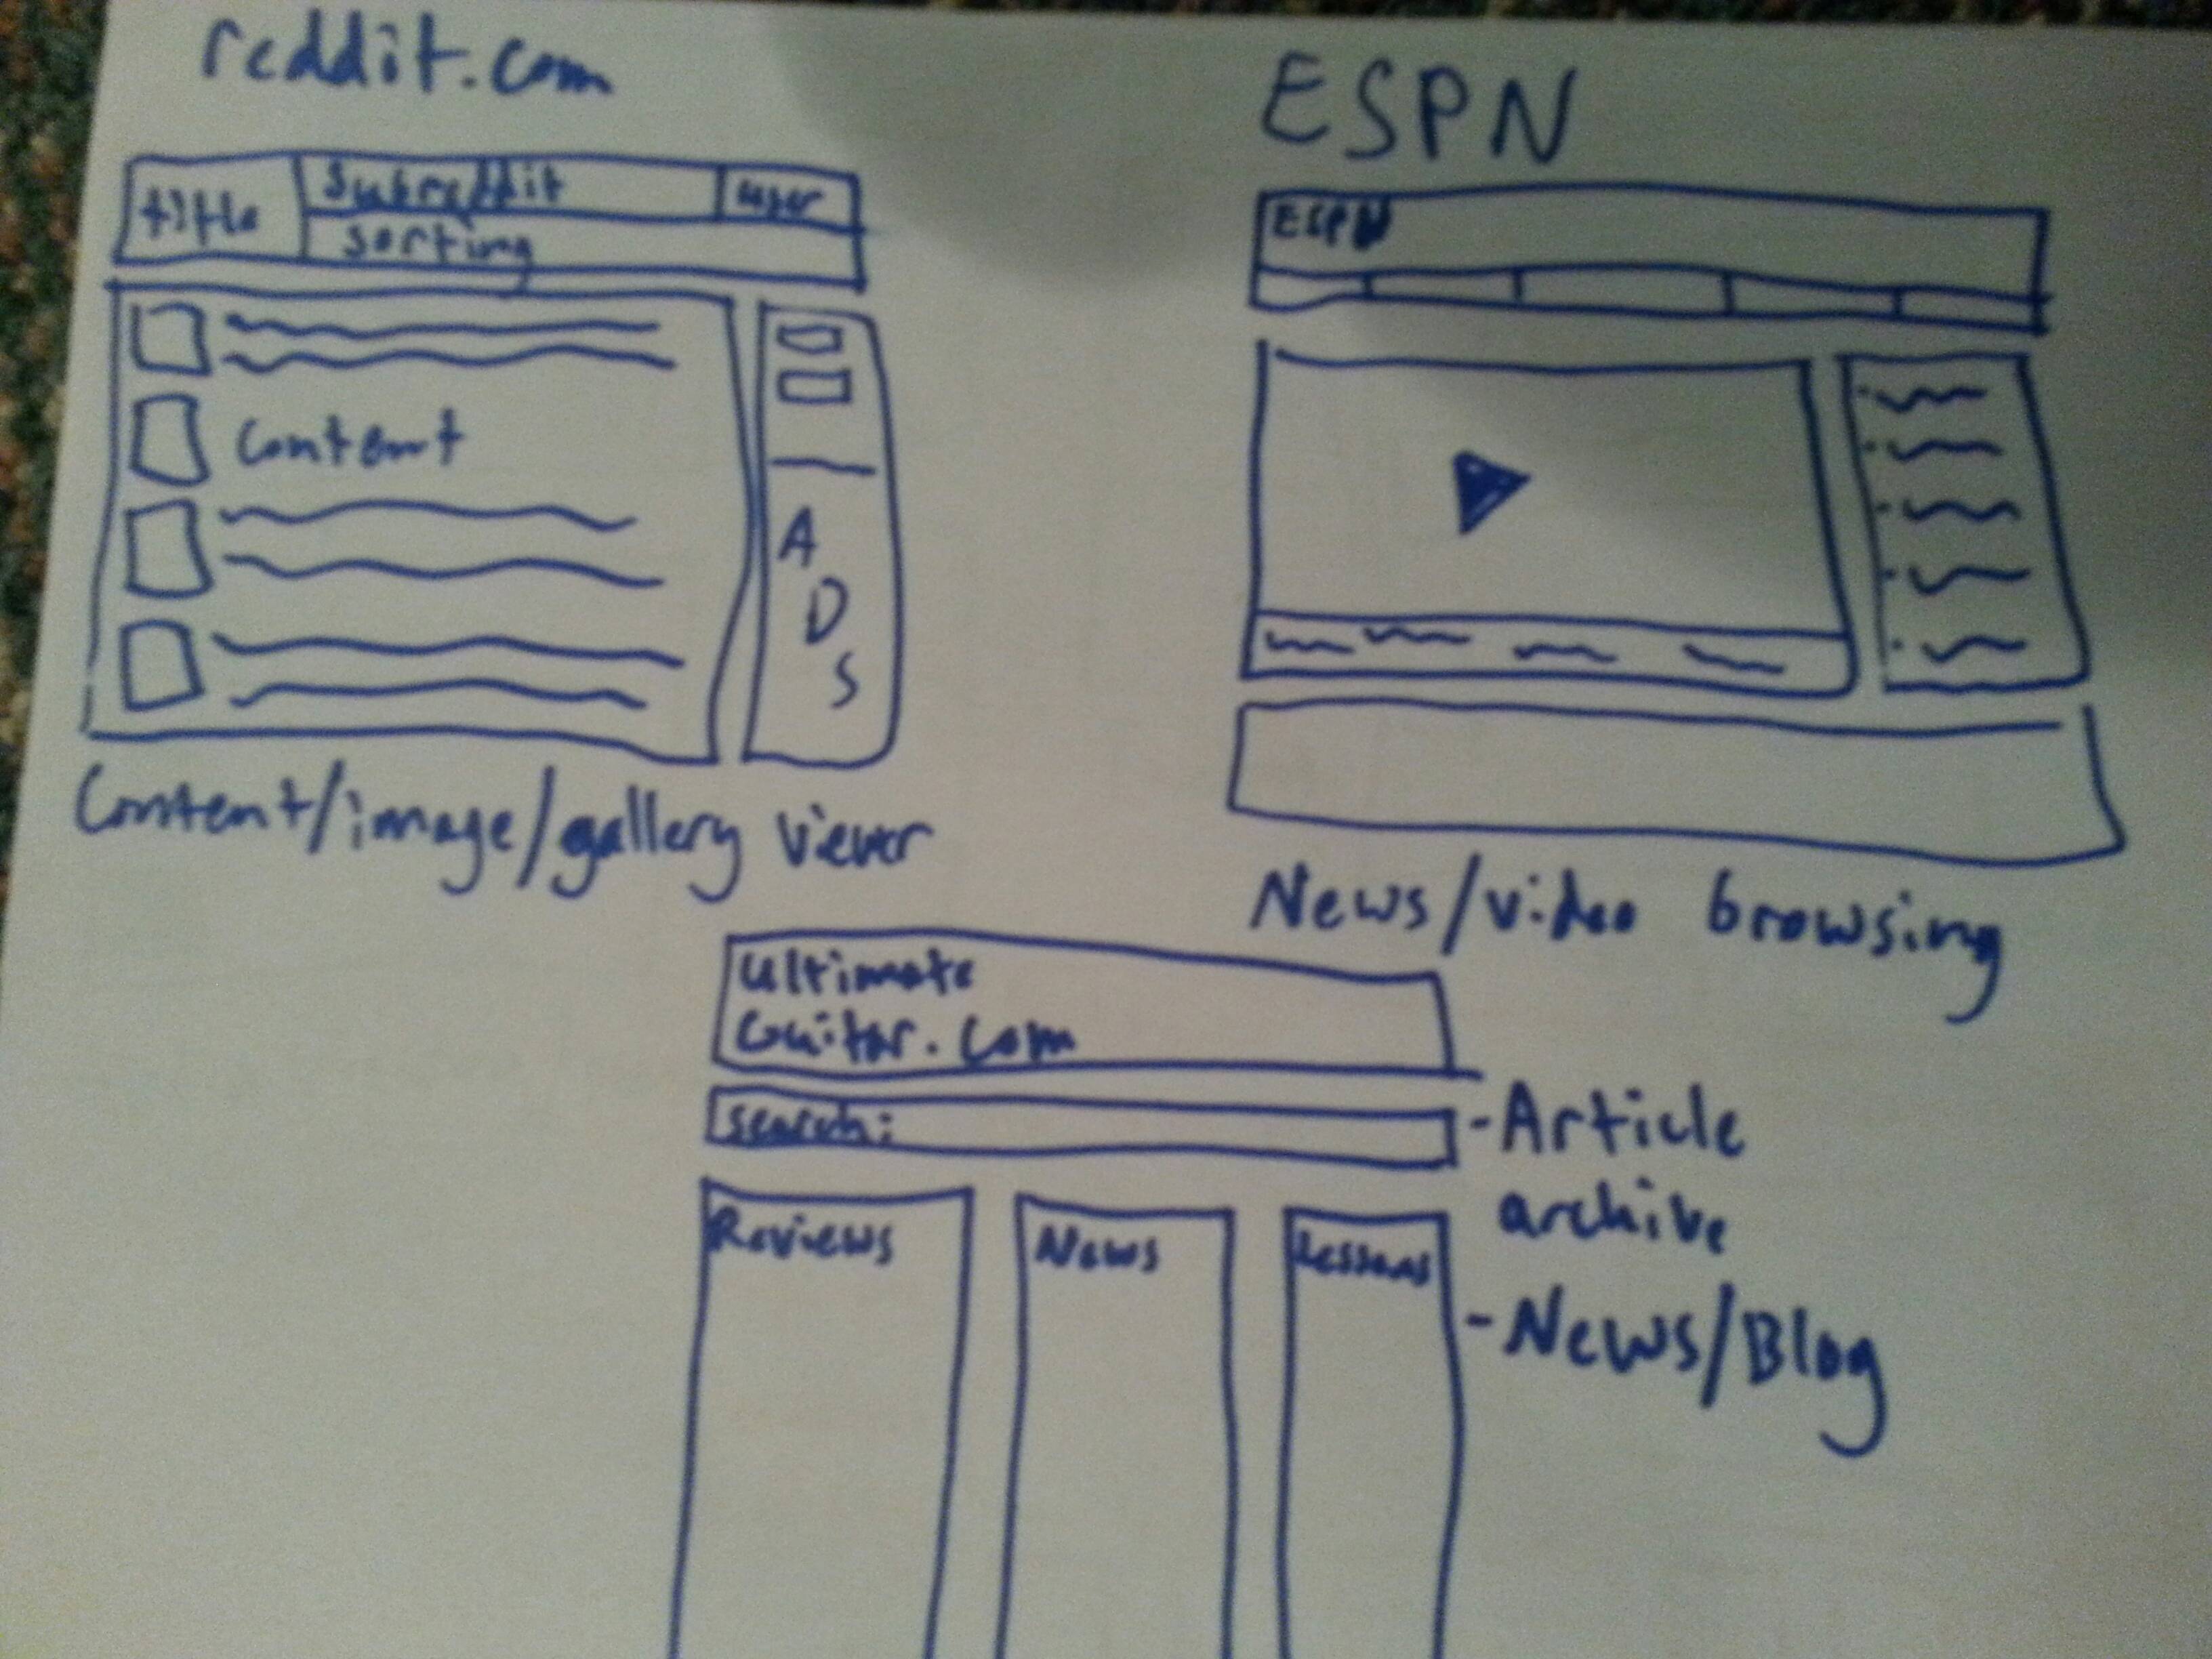 reddit.com
title
subreddit
user
sorting
Content
A
D
S
Content/image/gallery viewer
ESPN
ESPN
News/video browsing
Ultimate
Guitar.com
search:
Reviews
News
Lessons
-Article
archive
-News/Blog